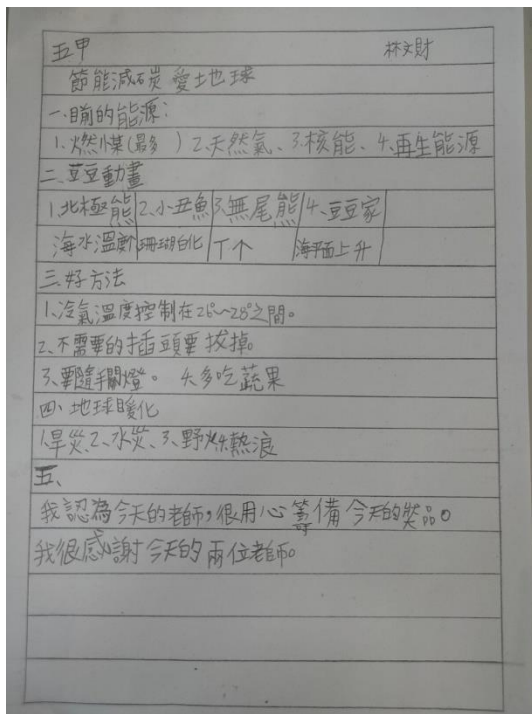 五甲 林文財
節能減碳 愛地球
一、目前的能源:
1.燃煤(最多 ) 2.天然氣、3.核能、4.再生能源
二、豆豆動畫
1.北極熊 2.小丑魚 3.無尾熊 4.豆豆家
海水溫 珊瑚白化 T个 海平面上升
三、好方法
1.冷氣溫度控制在26°~28°之間。
2.不需要的插頭要拔掉。
3.要隨手關燈。 4.多吃蔬果
四、地球暖化
1.旱災、2.水災、3.野火、4.熱浪
五、
我認為今天的老師,很用心籌備今天的獎品。
我很感謝今天的兩位老師。